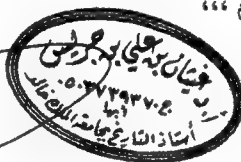 غيثان بن علي بن جريس
ج/٠٥٠٣٧٢٩٣٧٠
أبها
أستاذ التاريخ بجامعة الملك خالد